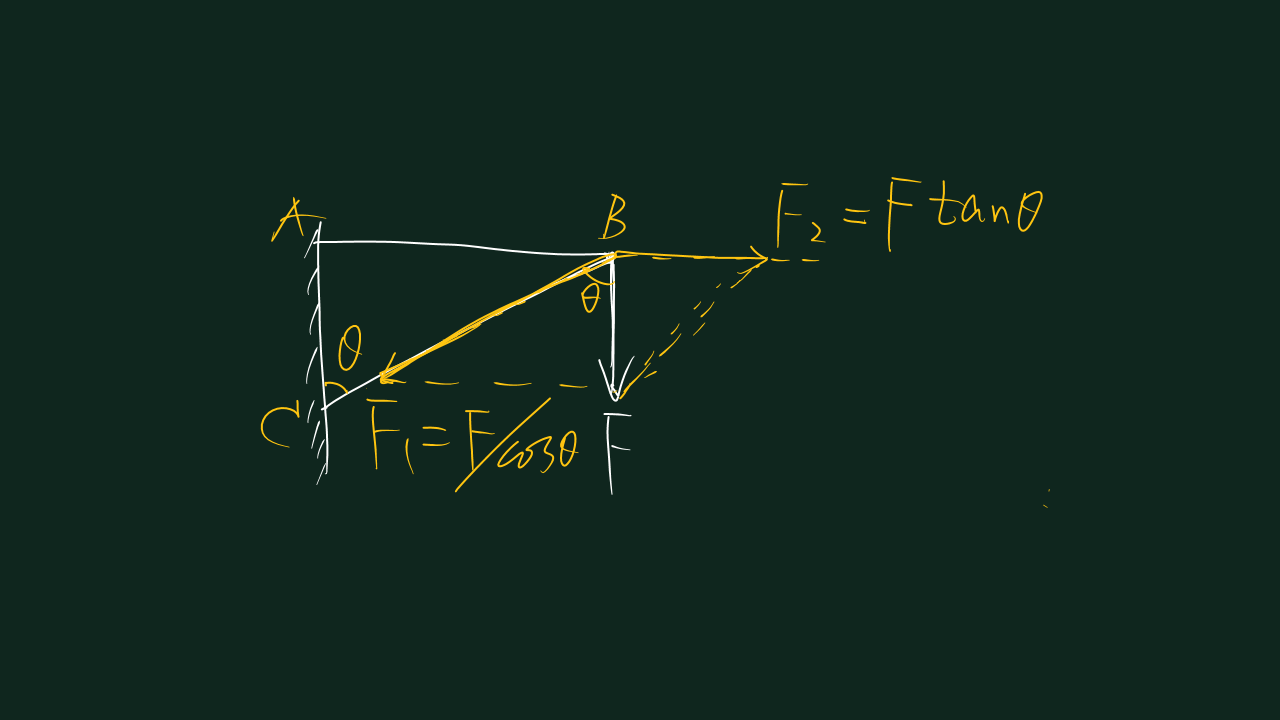 A
B
F₂ = F tanθ
θ
θ
C
F₁ = F/cosθ
F